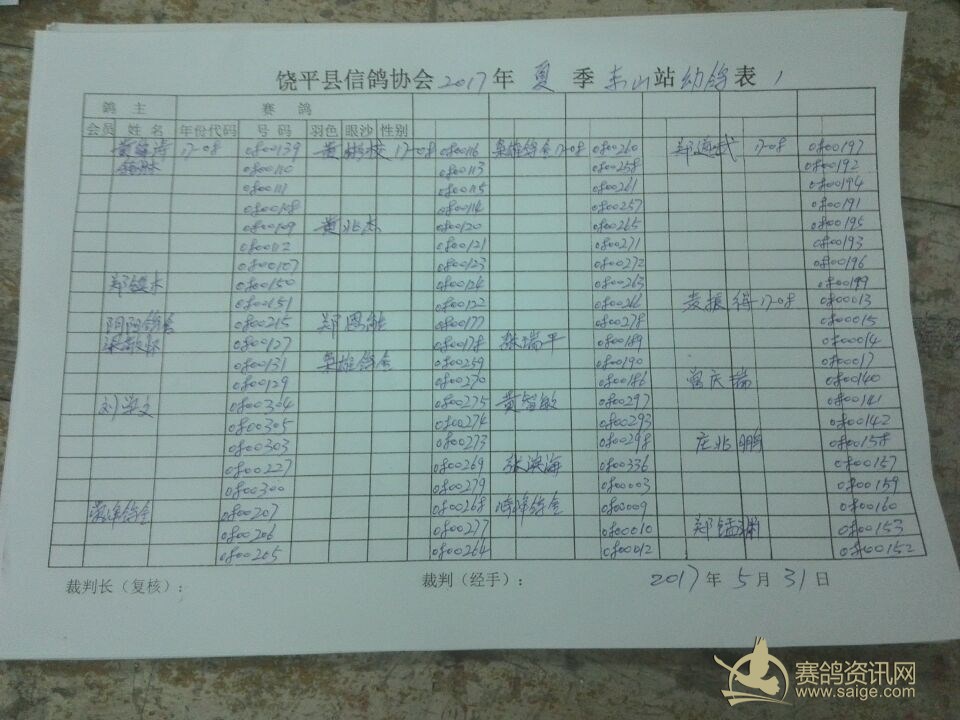 饶平县信鸽协会2017年 夏 季 东山站幼鸽表 1
鸽 主 赛 鸽
会员 姓 名 年份代码 号 码 羽色 眼沙 性别
17-08 0800139 黄 17-08 0800116 枭雄鸽舍 17-08 0800260 郑 武 17-08 0800197
0800110 0800113 0800258 0800192
0800111 0800115 0800261 0800194
0800108 0800114 0800257 0800191
0800109 黄兆杰 0800120 0800265 0800195
0800112 0800121 0800271 0800193
0800107 0800123 0800272 0800196
郑 木 0800150 0800124 0800263 0800199
0800151 0800122 0800266 麦振得 17-08 0800013
0800215 郑恩 0800177 0800278 0800015
0800127 0800178 张瑞平 0800189 0800014
0800131 枭雄鸽舍 0800259 0800190 0800017
0800129 0800270 0800186 曾庆瑞 0800140
刘学文 0800304 0800275 黄智敏 0800297 0800141
0800305 0800274 0800293 0800142
0800303 0800273 0800298 庄兆鹏 0800158
0800227 0800269 张洪海 0800336 0800157
0800300 0800279 0800003 0800159
鸽舍 0800207 0800268 鸽舍 0800009 0800160
0800206 0800277 0800010 郑 0800153
0800205 0800264 0800012 0800152
裁判长（复核）： 裁判（经手）： 2017 年 5 月 31 日
赛鸽资讯网
www.saige.com